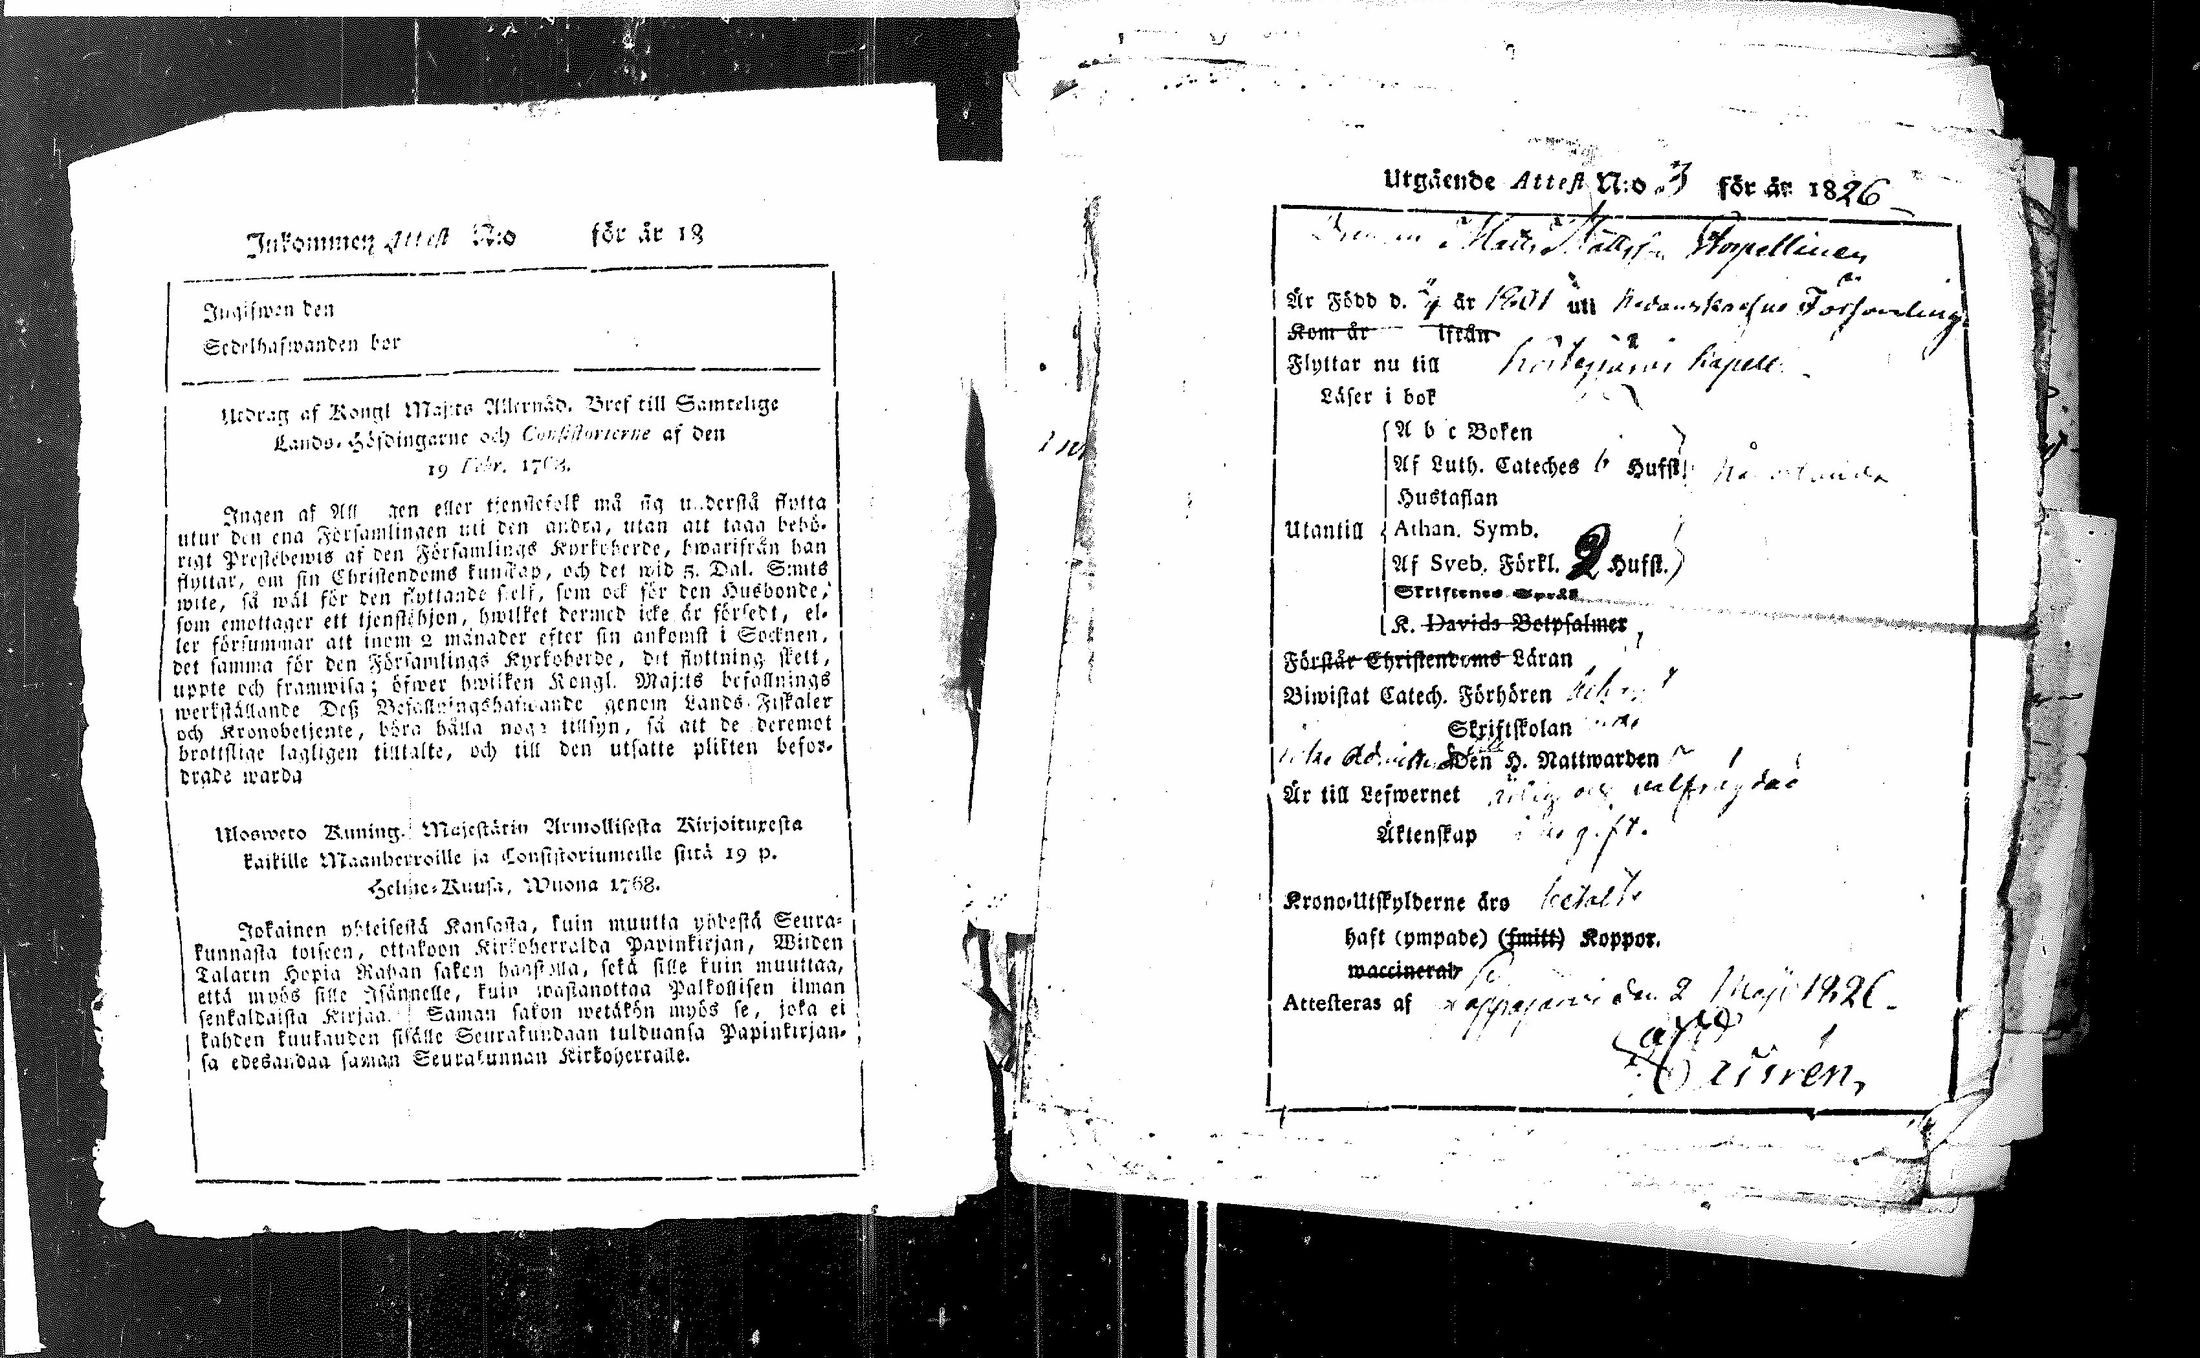 Inkommen Attest N:o för år 18
Ingifwen den
Sedelhafwanden bor
Utdrag af Kongl Maj:ts Allernåd. Bref till Samtelige
Lands-Höfdingarne och Consistorierne af den
19 Febr. 1768.
Ingen af All gen eller tjenstefolk må sig understå flytta
utur den ena Församlingen uti den andra, utan att taga behö-
rigt Prestebewis af den Församlings Kyrkoherde, hwarifrån han
flyttar, om sin Christendoms kunskap, och det wid 5. Dal. S:mts
wite, så wäl för den flyttande sielf, som ock för den Husbonde,
som emottager ett tjenstehjon, hwilket dermed icke är försedt, el-
ler försummar att inom 2 månader efter sin ankomst i Socknen,
det samma för den Församlings Kyrkoherde, dit flyttning skett,
uppte och framwisa; öfwer hwilken Kongl. Maj:ts befallnings
werkställande Deß Befallningshafwande genom Lands-Fiskaler
och Kronobetjente, böra hålla noga tillsyn, så att de deremot
brottslige lagligen tilltalte, och till den utsatte plikten befor-
drade warda
Uloswero Kuning. Majestätin Armollisesta Kirjoituxesta
kaikille Maanherroille ja Consistoriumeille siitä 19 p.
Helme-Kuusa, Wuona 1768.
Jokainen yhteisestä Kansasta, kuin muutta yhdestä Seura-
kunnasta toiseen, ottakoon Kirkoherralda Papinkirjan, Wiiden
Talarin Hopia Rahan sakon haastolla, sekä sille kuin muuttaa,
että myös sille Isännelle, kuin wastanottaa Palkollisen ilman
senkaldaista Kirjaa. Saman sakon wetäkön myös se, joka ei
kahden kuukauden sisälle Seurakundaan tulduansa Papinkirjan-
sa edesandaa saman Seurakunnan Kirkoherralle.
Utgående Attest N:o 3 för år 1826
Matts Mattsson Korpellinen
Är Född d. år 1801 uti Församling
Kom år ifrån
Flyttar nu till Kapell.
Läser i bok
A b c Boken
Af Luth. Cateches Hufst.
Hustaflan
Utantill Athan. Symb.
Af Sveb. Förkl. 2 Hufst.
Skriftenes Språk
K. Davids Botpsalmer
Förstår Christendoms Läran
Biwistat Catech. Förhören
Skriftskolan
Den H. Nattwarden
Är till Lefwernet ärlig och välfrägdad
Äktenskap ogift.
Krono-Utskylderne äro betalte
haft (ympade) (smitt) Koppor.
waccinerad
Attesteras af den 2 Maji 1826